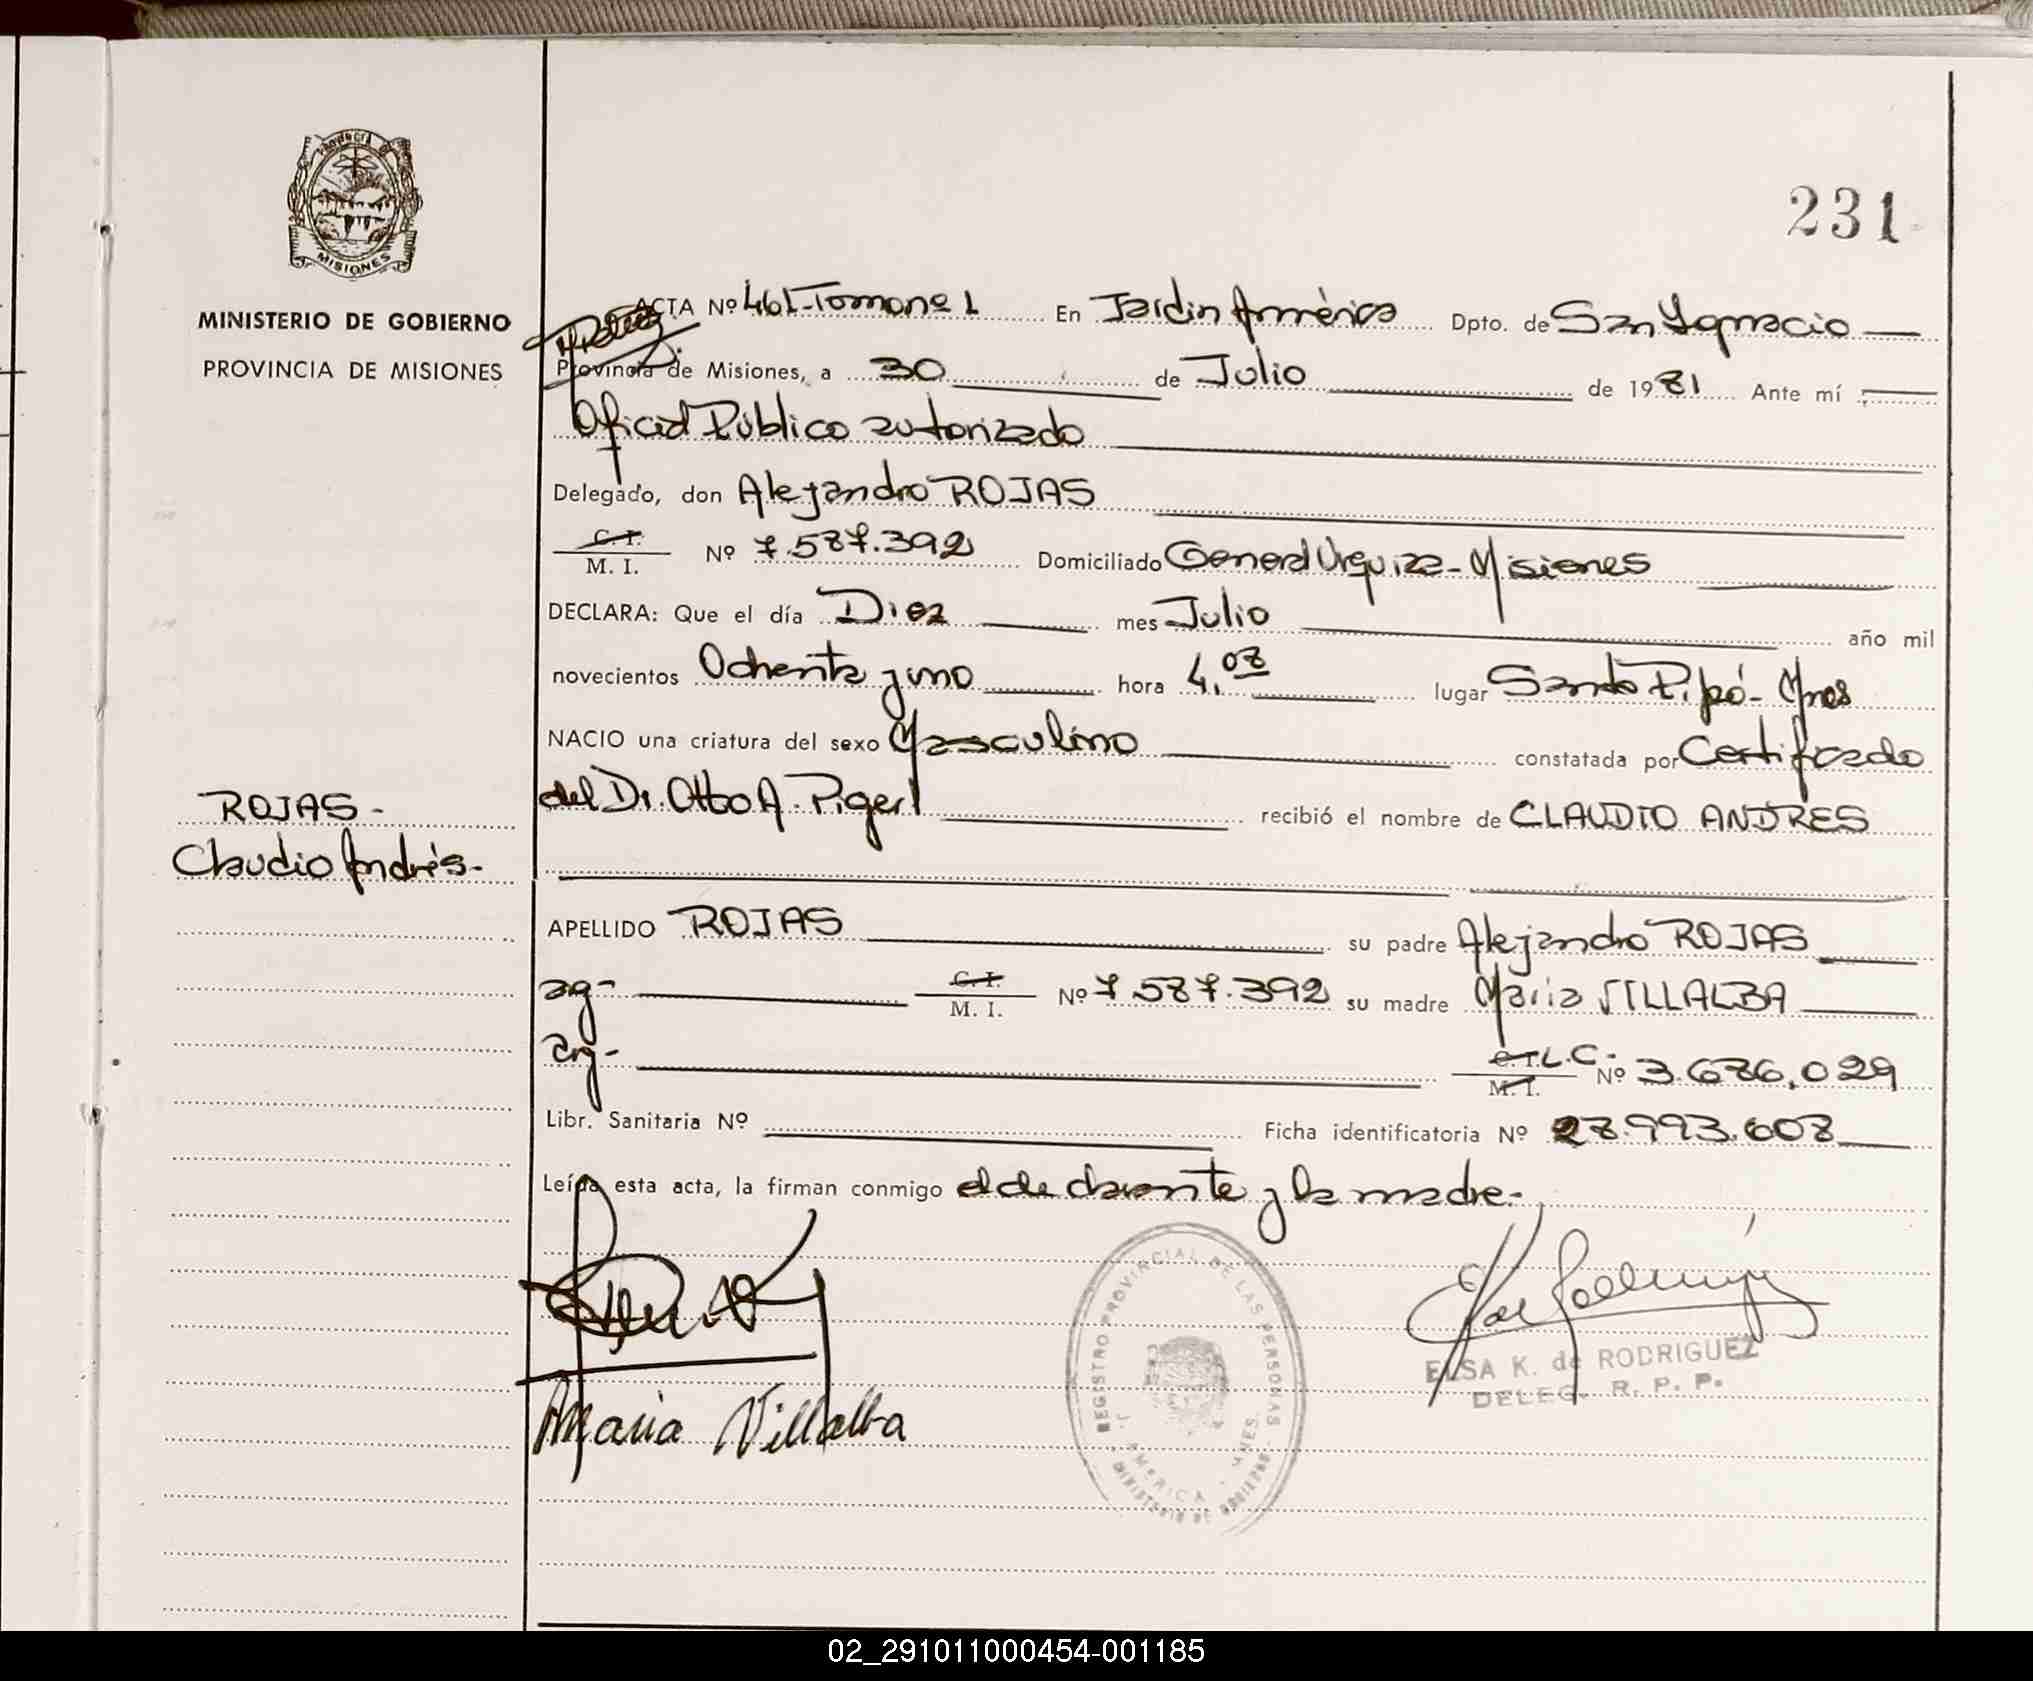 PROVINCIA DE
MISIONES
MINISTERIO DE GOBIERNO
PROVINCIA DE MISIONES
ROJAS -
Claudio Andrés-
231
ACTA Nº 461-Tomo nº 1 En Jardin América Dpto. de San Ygnacio
Provincia de Misiones, a 30 de Julio de 1981 Ante mí
Oficial Público autorizado
Delegado, don Alejandro ROJAS
C. I.
M. I. Nº 7.587.392 Domiciliado General Urquiza - Misiones
DECLARA: Que el día Diez mes Julio año mil
novecientos Ochenta y uno hora 4,08 lugar Santo Pipó - Mnes
NACIO una criatura del sexo Masculino constatada por Certificado
del Dr. Otto A. Pigerl recibió el nombre de CLAUDIO ANDRES
APELLIDO ROJAS su padre Alejandro ROJAS
arg- C. I.
M. I. Nº 7.587.392 su madre Maria VILLALBA
arg- C. I. L.C.-
M. I. Nº 3.686,029
Libr. Sanitaria Nº Ficha identificatoria Nº 28.993.608
Leída esta acta, la firman conmigo el declarante y la madre.-
Maria Villalba
REGISTRO PROVINCIAL DE LAS PERSONAS
J. AMERICA - MNES.
MINISTERIO DE GOBIERNO
ELSA K. de RODRIGUEZ
DELEG. R. P. P.
02_291011000454-001185